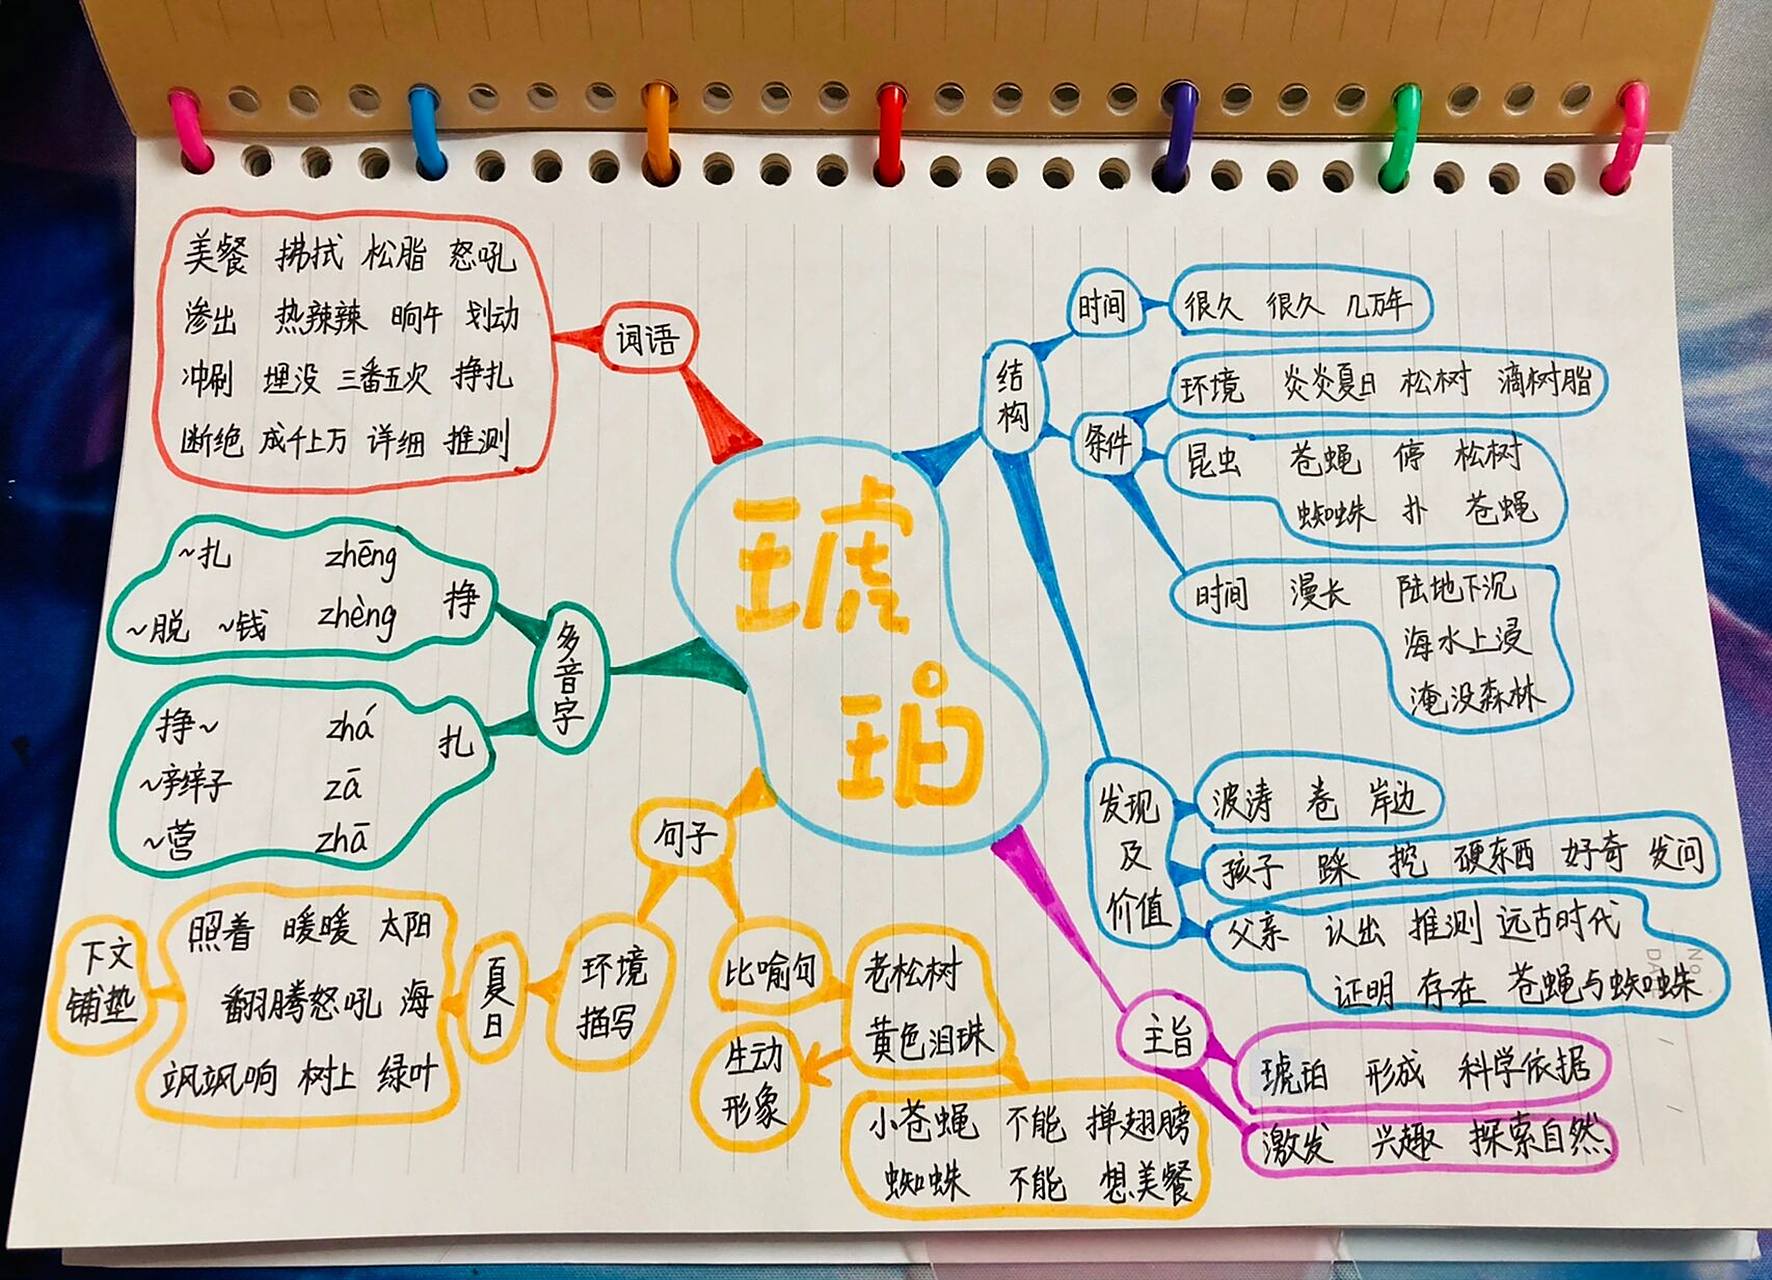 琥
珀
词语
美餐 拂拭 松脂 怒吼
渗出 热辣辣 晌午 划动
冲刷 埋没 三番五次 挣扎
断绝 成千上万 详细 推测
多音字
~扎 zhēng 挣
~脱 ~钱 zhèng
挣~ zhá 扎
~辫子 zā
~营 zhā
句子
环境
描写
夏日
照着 暖暖 太阳
翻腾怒吼 海
飒飒响 树上 绿叶
下文
铺垫
比喻句
老松树
黄色泪珠
生动
形象
小苍蝇 不能 掸翅膀
蜘蛛 不能 想美餐
结构
时间
很久 很久 几万年
条件
环境 炎炎夏日 松树 滴树脂
昆虫 苍蝇 停 松树
蜘蛛 扑 苍蝇
时间 漫长 陆地下沉
海水上浸
淹没森林
发现
及
价值
波涛 卷 岸边
孩子 踩 挖 硬东西 好奇 发问
父亲 认出 推测 远古时代
证明 存在 苍蝇与蜘蛛
主旨
琥珀 形成 科学依据
激发 兴趣 探索自然